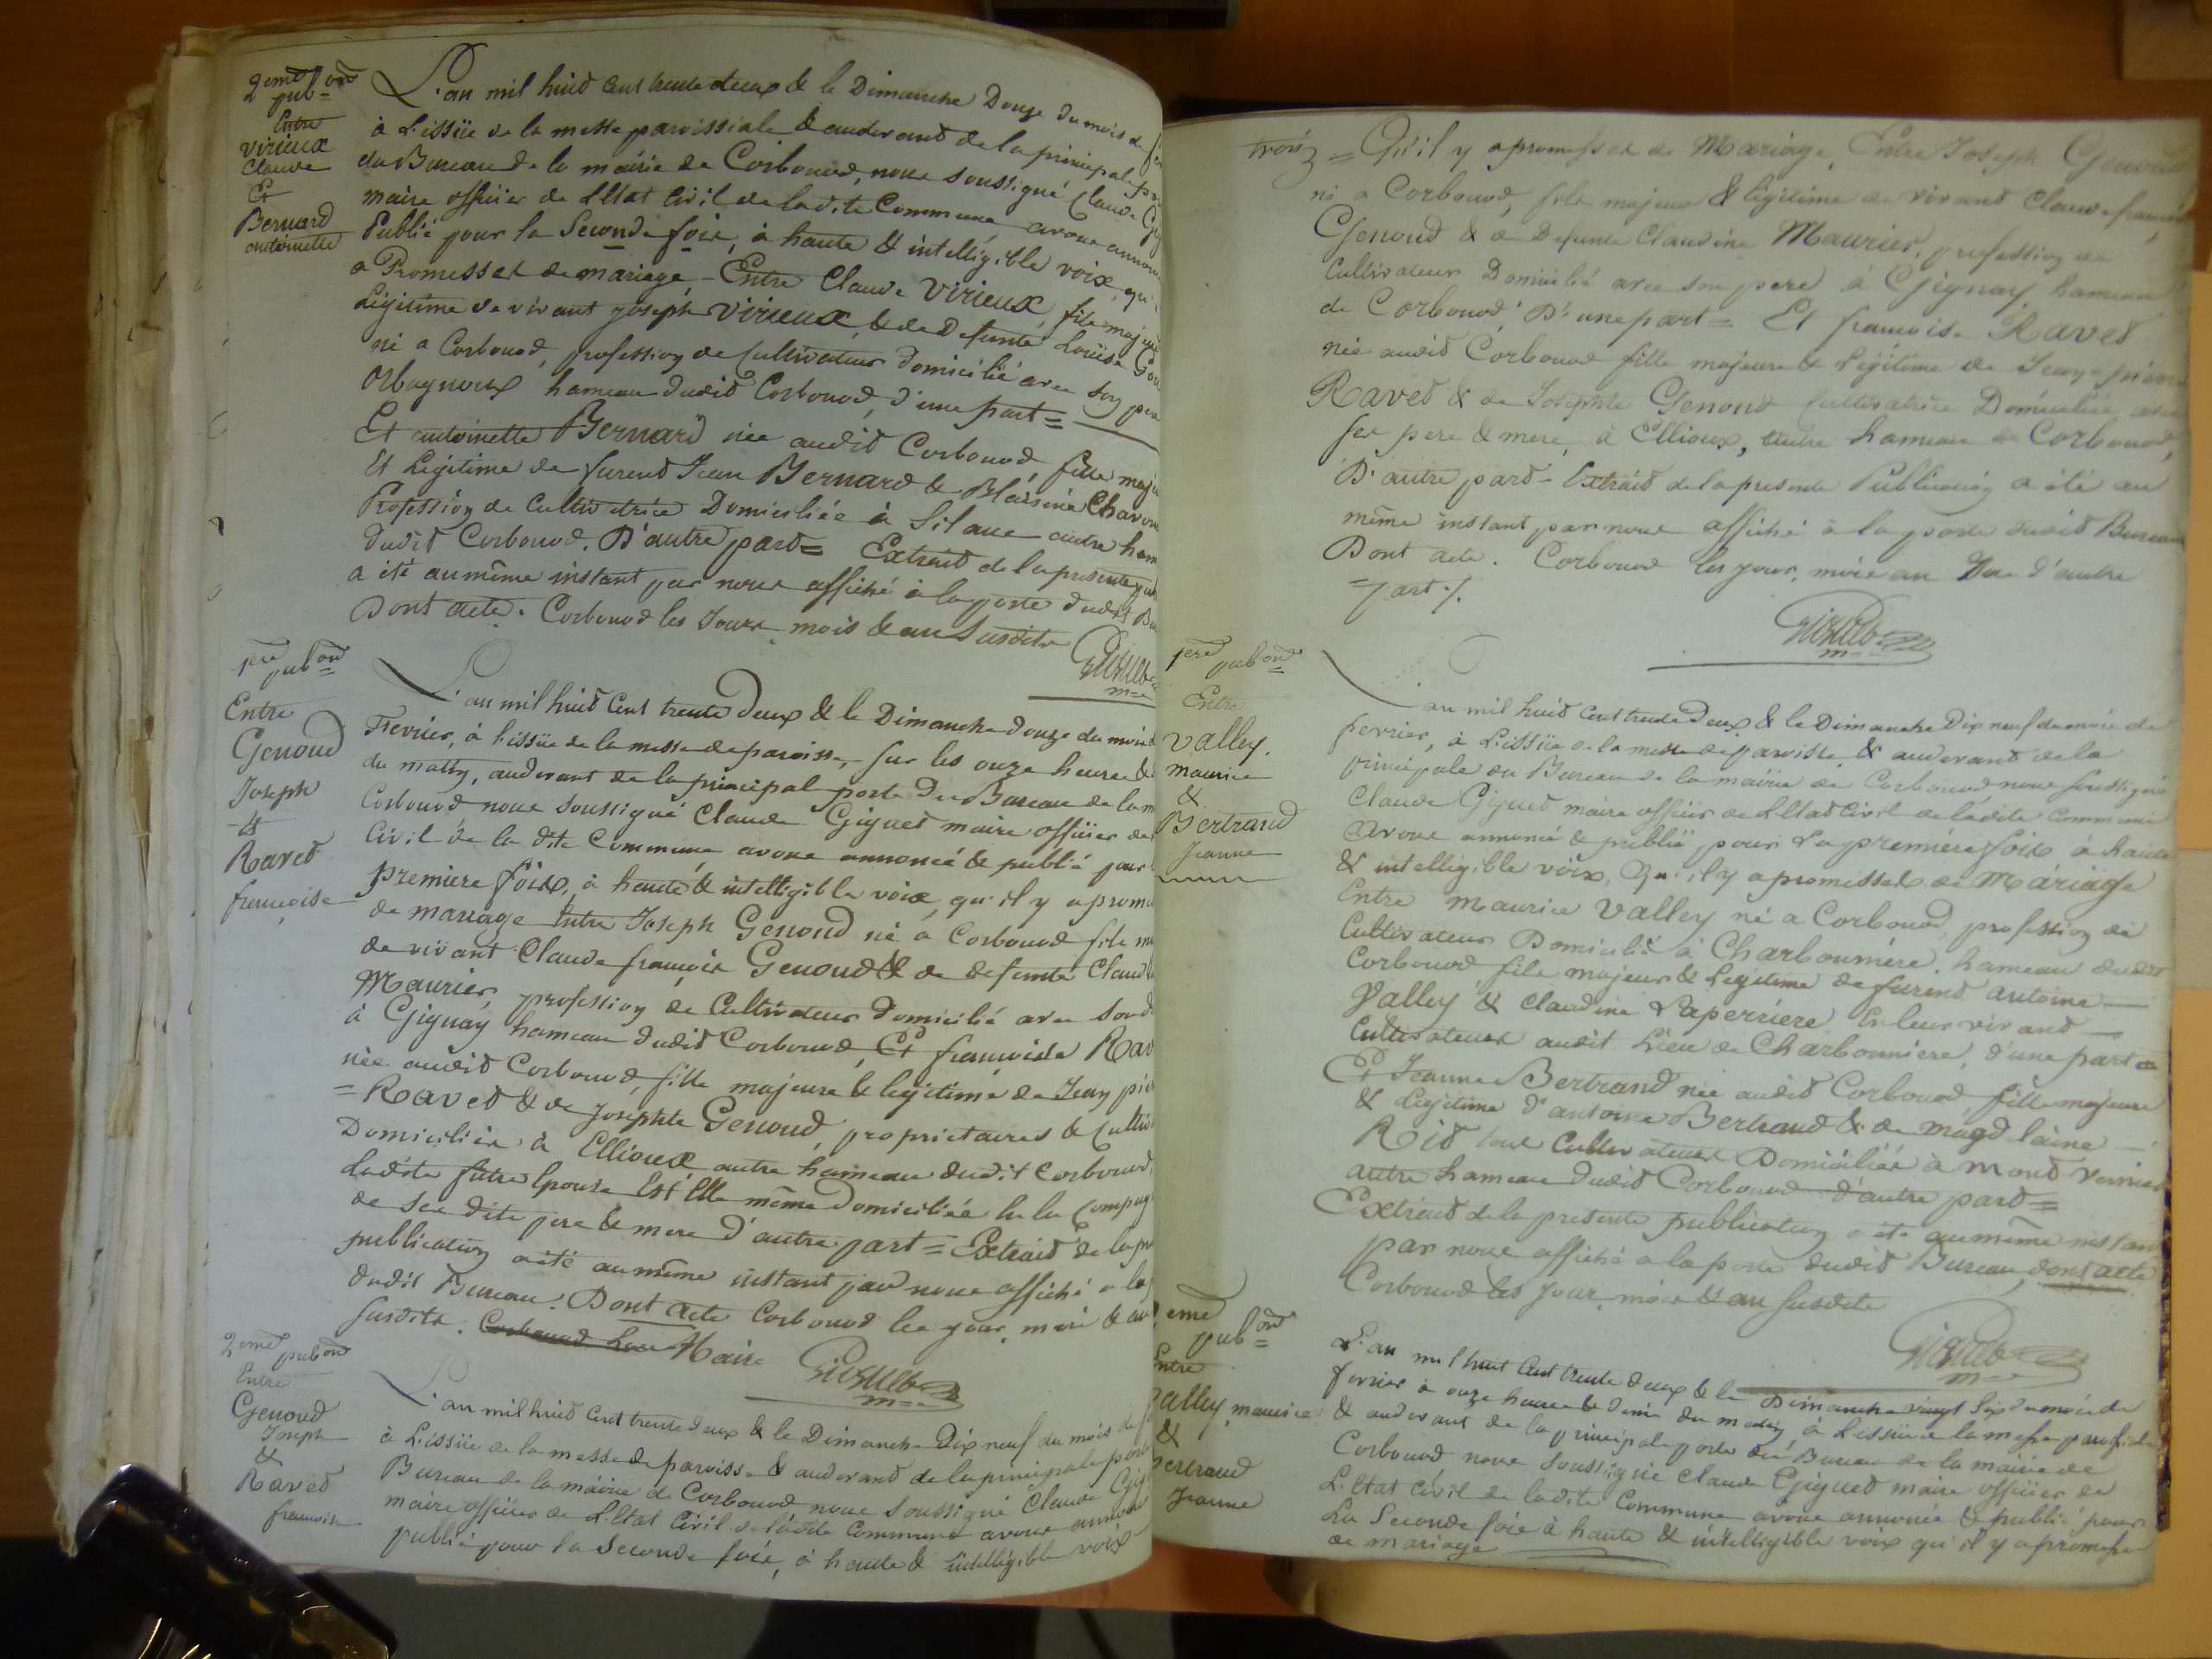 2eme pub.on
Entre
virieux
Claude
Et
Bernard
antoinette
L'an mil huit Cent trente deux & le Dimanche Douze du mois de
à L'issüe de la messe paroissiale & audevant de la principale
du Bureau de la mairie de Corbonod, nous soussigné Claude
maire officier de L'Etat Civil de ladite Commune avons
Publié pour la Seconde fois, à haute & intelligible voix, qu'
a Promesses de mariage, Entre Claude Virieux, fils
Légitime de vivant joseph Virieux, & de Defunte Louise
né a Corbonod, profession de Cultivateur domicilié avec son
Orbagnoux hameau dudit Corbonod, d'une part =
Et antoinette Bernard née audit Corbonod, fille
Et Légitime de furent Jean Bernard & Blaisine
Profession de Cultivatrice Domiciliée à Silans autre
dudit Corbonod. D'autre part = Extrait de la presente
a été au même instant par nous affiché à la porte dudit
Dont acte. Corbonod les Jours mois & an Susdits
1ere pub.on
Entre
Genoud
Joseph
&
Ravet
francoise
L'an mil huit Cent trente Deux & le Dimanche douze du mois
Fevrier, à l'issüe de la messe de paroisse, sur les onze heures
du matin, audevant de la principal porte du Bureau de la
Corbonod nous soussigné Claude Giguet maire officier de
Civil de la dite Commune avons annoncé & publié pour
première fois, à haute & intelligible voix, qu'il y a
de mariage Entre Joseph Genoud né a Corbonod fils
de vivant Claude françois Genoud & de defunte
Maurier, profession de Cultivateur domicilié avec
à Gignay hameau dudit Corbonod, Et françoise
née audit Corbonod, fille majeure & legitime de Jean
= Ravet & de Josephte Genoud, proprietaires &
Domiciliés à Ellioux autre hameau dudit Corbonod,
Ladite future Epouse Est Elle même domiciliée En la
de ses dits pere & mere d'autre part = Extrait de la
publication a été au même instant par nous affiché a la
dudit Bureau. Dont acte Corbonod les jour, mois &
susdits. Maire
2eme pub.on
Entre
Genoud
Joseph
&
Ravet
francoise
L'an mil huit Cent trente deux & le Dimanche Dix neuf du mois de
à L'issüe de la messe de paroisse & audevant de la principale
Bureau de la mairie de Corbonod nous soussigné Claude
maire officier de L'Etat Civil de ladite Commune avons
publié pour la Seconde fois, à haute & intelligible voix
= Qu'il y a promesses de Mariage, Entre Joseph Genoud
né a Corbonod, fils majeur & légitime de vivant Claude françois
Genoud & de Defunte Claudine Maurier, profession de
Cultivateur Domicilié avec son pere à Gignay, hameau
de Corbonod, D'une part = Et francoise Ravet
née audit Corbonod fille majeure & Légitime de Jean pierre
Ravet & de Josephte Genoud Cultivatrice Domiciliée avec
ses pere & mere, à Ellioux, autre hameau de Corbonod,
D'autre part - Extrait de la presente Publication a été au
même instant par nous affiché à la porte dudit Bureau
Dont acte. Corbonod les jour, mois an Que d'autre
= part ./.
1ere pub.on
Entre
Valley.
maurice
&
Bertrand
Jeanne
L'an mil huit Cent trente Deux & le Dimanche Dix neuf du mois de
fevrier, à L'issüe de la messe de paroisse & audevant de la
principale du Bureau de la mairie de Corbonod nous soussigné
Claude Giguet maire officier de L'Etat Civil de ladite Commune
avons annoncé & publié pour La première fois à haute
& intelligible voix, Qu'il y a promesses de Mariage
Entre Maurice Valley né a Corbonod, profession de
Cultivateur Domicilié à Charbonnière, hameau dudit
Corbonod fils majeur & Legitime de furent antoine
Valley & Claudine Laperrière En leur vivant
Cultivateurs audit Lieu de Charbonniere, d'une part
Et Jeanne Bertrand née audit Corbonod, fille majeure
& Legitime d'antoine Bertrand & de magdelaine
Roid tous Cultivateurs Domiciliés à mont vernier
autre hameau dudit Corbonod d'autre part =
Extrait de la presente publication a été au même instant
par nous affiché a la porte dudit Bureau, dont acte
Corbonod les jour, mois & an susdits
eme
pub.on
Entre
Valley maurice
&
Bertrand
Jeanne
L'an mil huit Cent trente deux & le Dimanche vingt Six du mois de
fevrier à onze heures & demie du matin à L'issüe de la messe paroissiale
& audevant de la principale porte du Bureau de la mairie de
Corbonod nous soussigné Claude Giguet maire officier de
L'Etat Civil de ladite Commune avons annoncé & publié pour
La Seconde fois à haute & intelligible voix qu'il y a promesses
de mariage